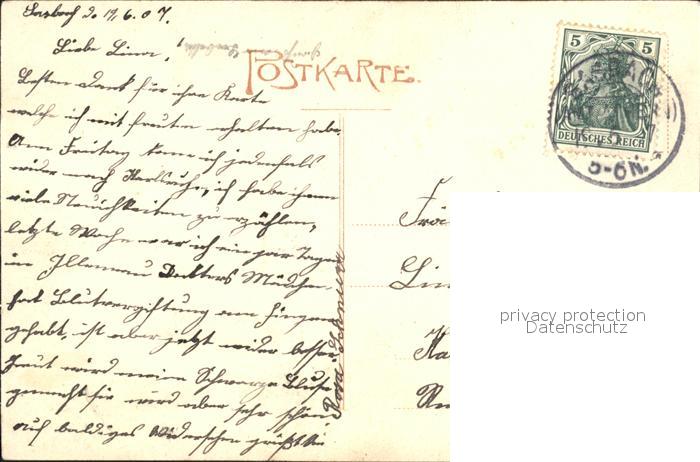 Sasbach d. 19.6.07.
Liebe Lina,!
POSTKARTE.
Besten Dank für ihre Karte
welche ich mit freuten erhalten habe,
Am Freitag kome ich jedenfals
wider nach Karlsruhe, ich habe ihnen
viele Neuichkeiten zu erzählen,
letzte Woche war ich ein par Tage
in Illenau Dokters Mädchen
hat Blutvergiftung am Finger
gehabt, ist aber jetzt wider besser
Heut wird meine Schwarze Bluse
gemacht sie wird aber sehr schön
auf baldiges Widersehen grüßt Sie
Rosa
5 5
DEUTSCHES REICH
5-6N.
Frä
Lin
Ka
privacy protection
Datenschutz